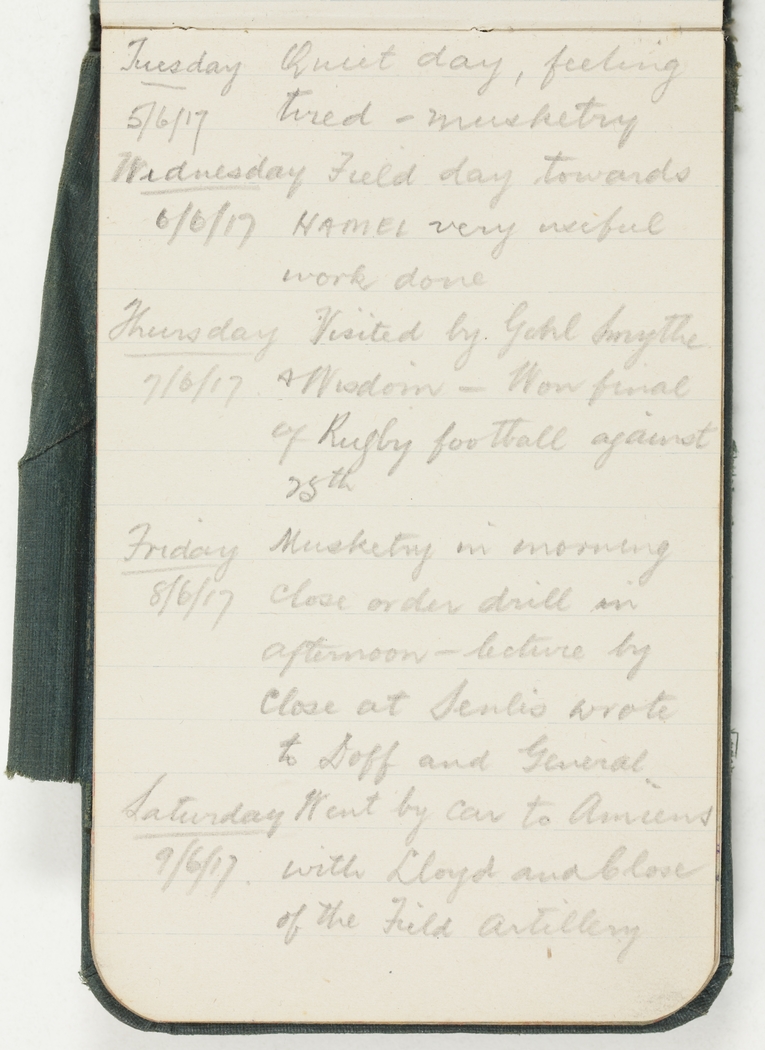 Tuesday Quiet day, feeling
5/6/17 tired - musketry
Wednesday Field day towards
6/6/17 HAMEL very useful
work done
Thursday Visited by Smythe
7/6/17 & Wisdom - Won final
of Rugby football against
25th
Friday Musketry in morning
8/6/17 Close order drill in
afternoon - lecture by
Close at Senlis wrote
to Doff and General
Saturday Went by car to Amiens
9/6/17. with Lloyd and Close
of the Field Artillery